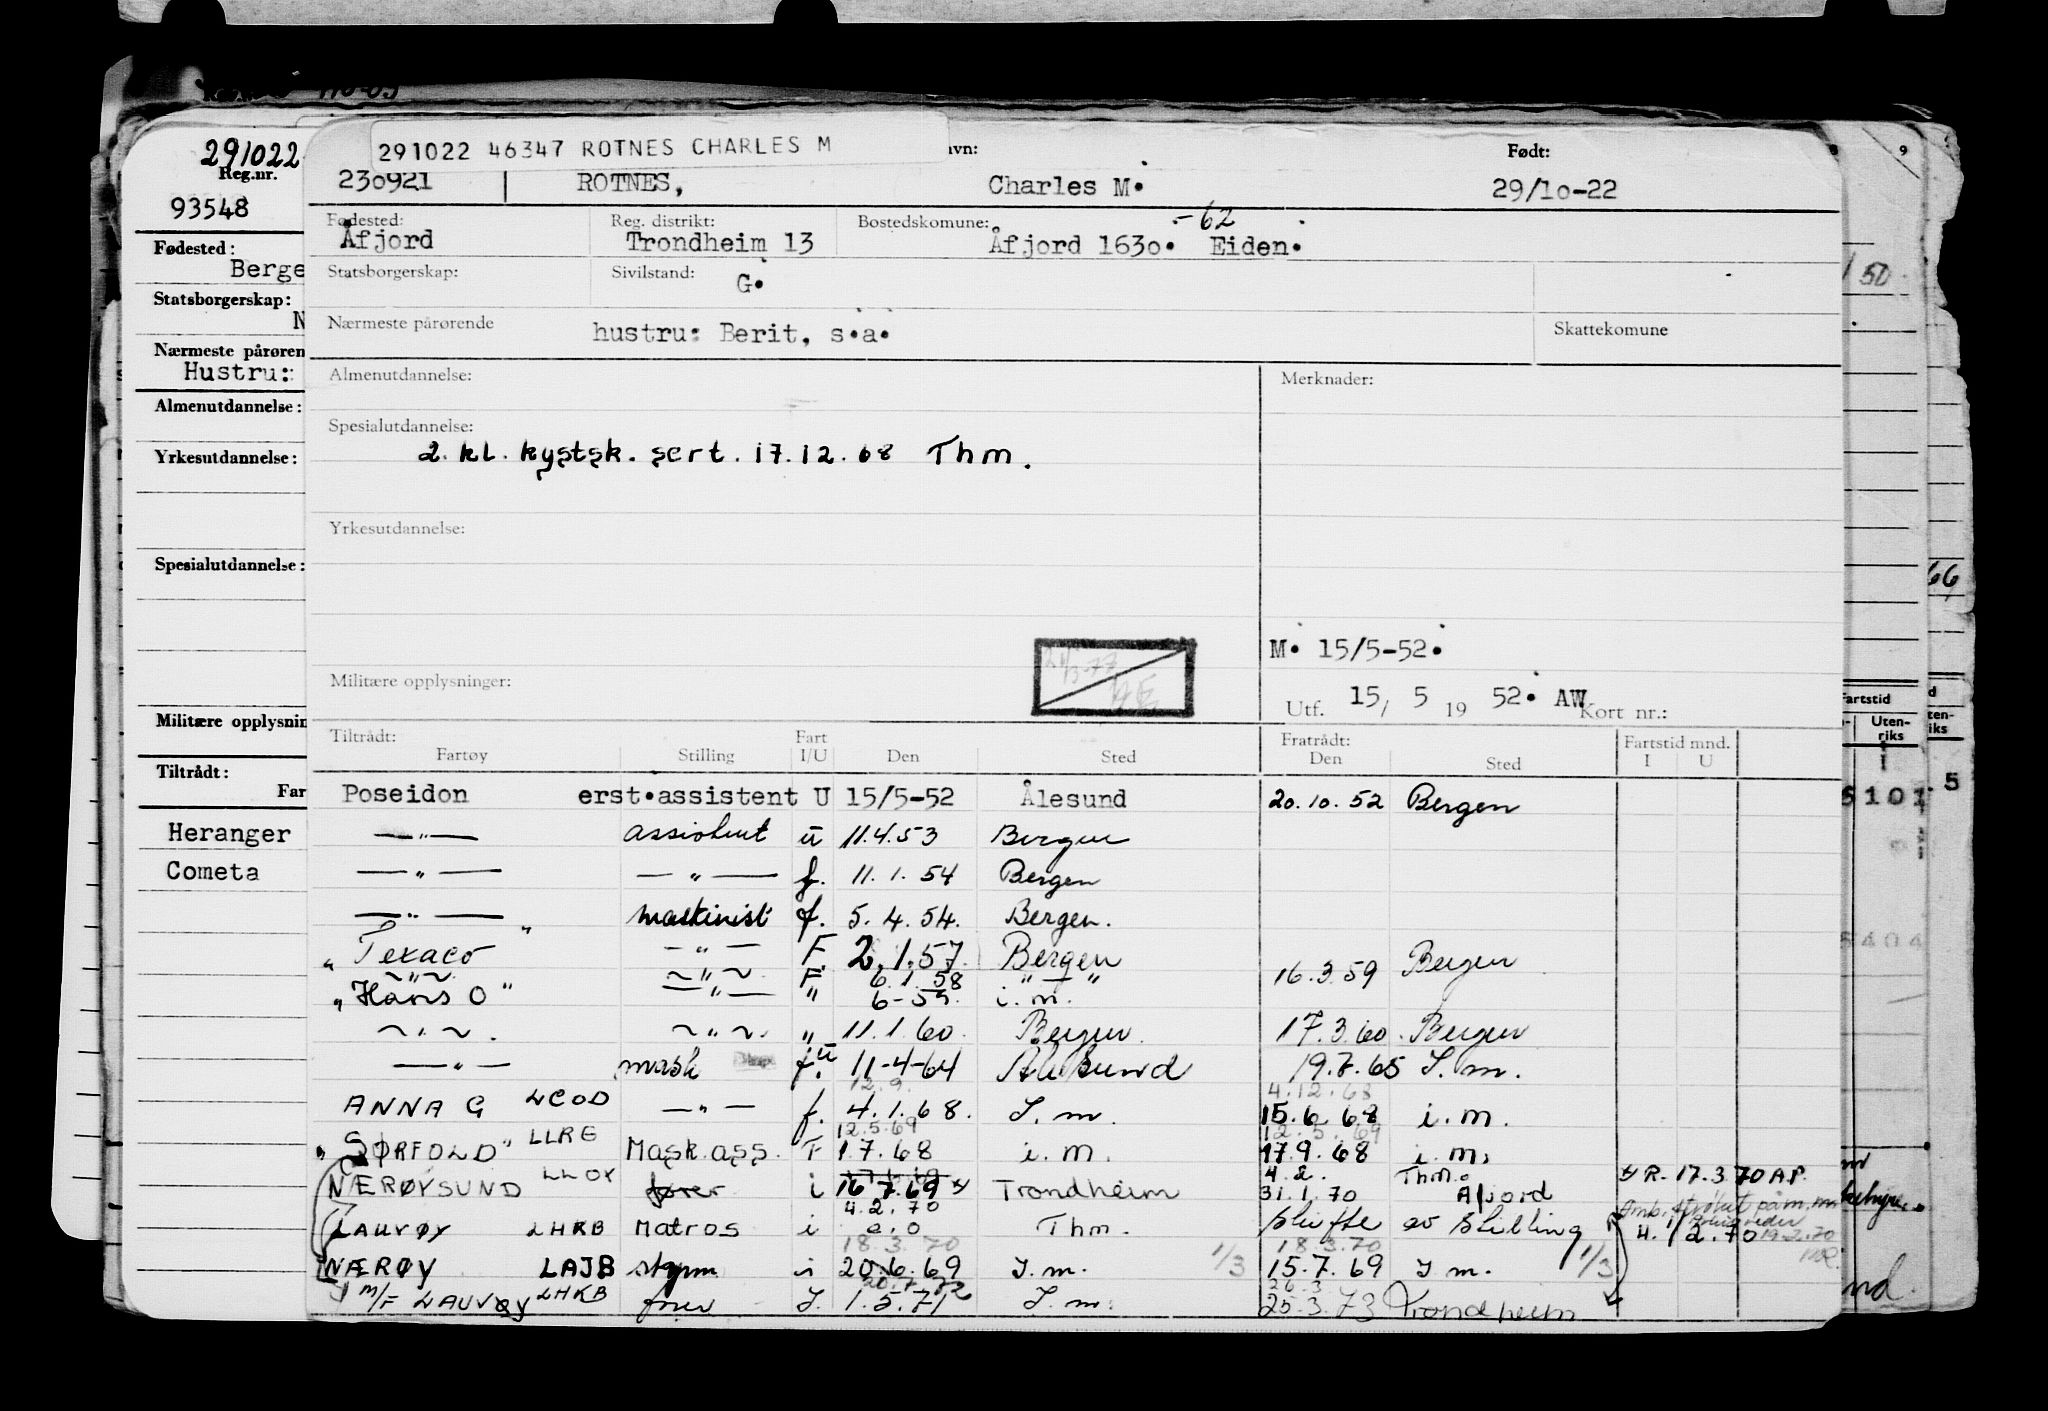 291022 46347 ROTNES CHARLES M
291022
Reg.nr.
93548
avn:
Født:
230921 ROTNES, Charles M. 29/10-22
Fødested: Åfjord
Reg. distrikt: Trondheim 13
Bostedskomune: Åfjord 1630. -62 Eiden.
Statsborgerskap:
Sivilstand: G.
Nærmeste pårørende hustru: Berit, s.a.
Skattekomune
Almenutdannelse:
Merknader:
Spesialutdannelse:
2. kl. kystsk. sert. 17.12.68 Thm.
Yrkesutdannelse:
M. 15/5-52.
Militære opplysninger:
Utf. 15/ 5 19 52. AW Kort nr.:
Tiltrådt: Fart Fratrådt: Fartstid mnd.
Fartøy Stilling I/U Den Sted Den Sted I U
Poseidon erst.assistent U 15/5-52 Ålesund 20.10.52 Bergen
—"— assistent u 11.4.53 Bergen
—"— —"— f. 11.1.54 Bergen
—"— maskinist f. 5.4.54. Bergen.
"Texaco" —"— F. 2.1.57. Bergen
~"~ ~"~ F 6.1.58 "—" 16.3.59 Bergen
"Hans O" —"— " 6-59. i.m.
~"~. ~"~. " 11.1.60. Bergen 17.3.60. Bergen
—"— mask f. u 11-4-64 Ålesund 19.7.65 I.m.
12.9. 4.12.68
ANNA G LCOD —"— f. 4.1.68. I.m. 15.6.68 i.m.
12.5.69 12.5.69
"SØRFOLD" LLRE Mask.ass. F 1.7.68 i.m. 17.9.68 i.m.
4.2. Thm.
NÆRØYSUND LLOY fører i 16.7.69 Trondheim 31.1.70 Afjord R. 17.3.70 A.P.
4.2.70
LAUVØY LHKB Matros i Thm. skifte av stilling 4./2.70
18.3.70 18.3.70
NÆRØY LAJB styrm i 20.6.69 I.m. 1/3 15.7.69 I m. 1/3
20.7.72 26.3
M/F LAUVØY LHKB fører I. 1.5.71 I.m. 25.3.73 Trondheim
Fødested:
Berge
Statsborgerskap:
N
Nærmeste pårøren
Hustru:
Almenutdannelse:
Yrkesutdannelse:
Spesialutdannelse:
Militære opplysnin
Tiltrådt:
Far
Heranger
Cometa
9
50
66
Fartstid
Uten-
riks